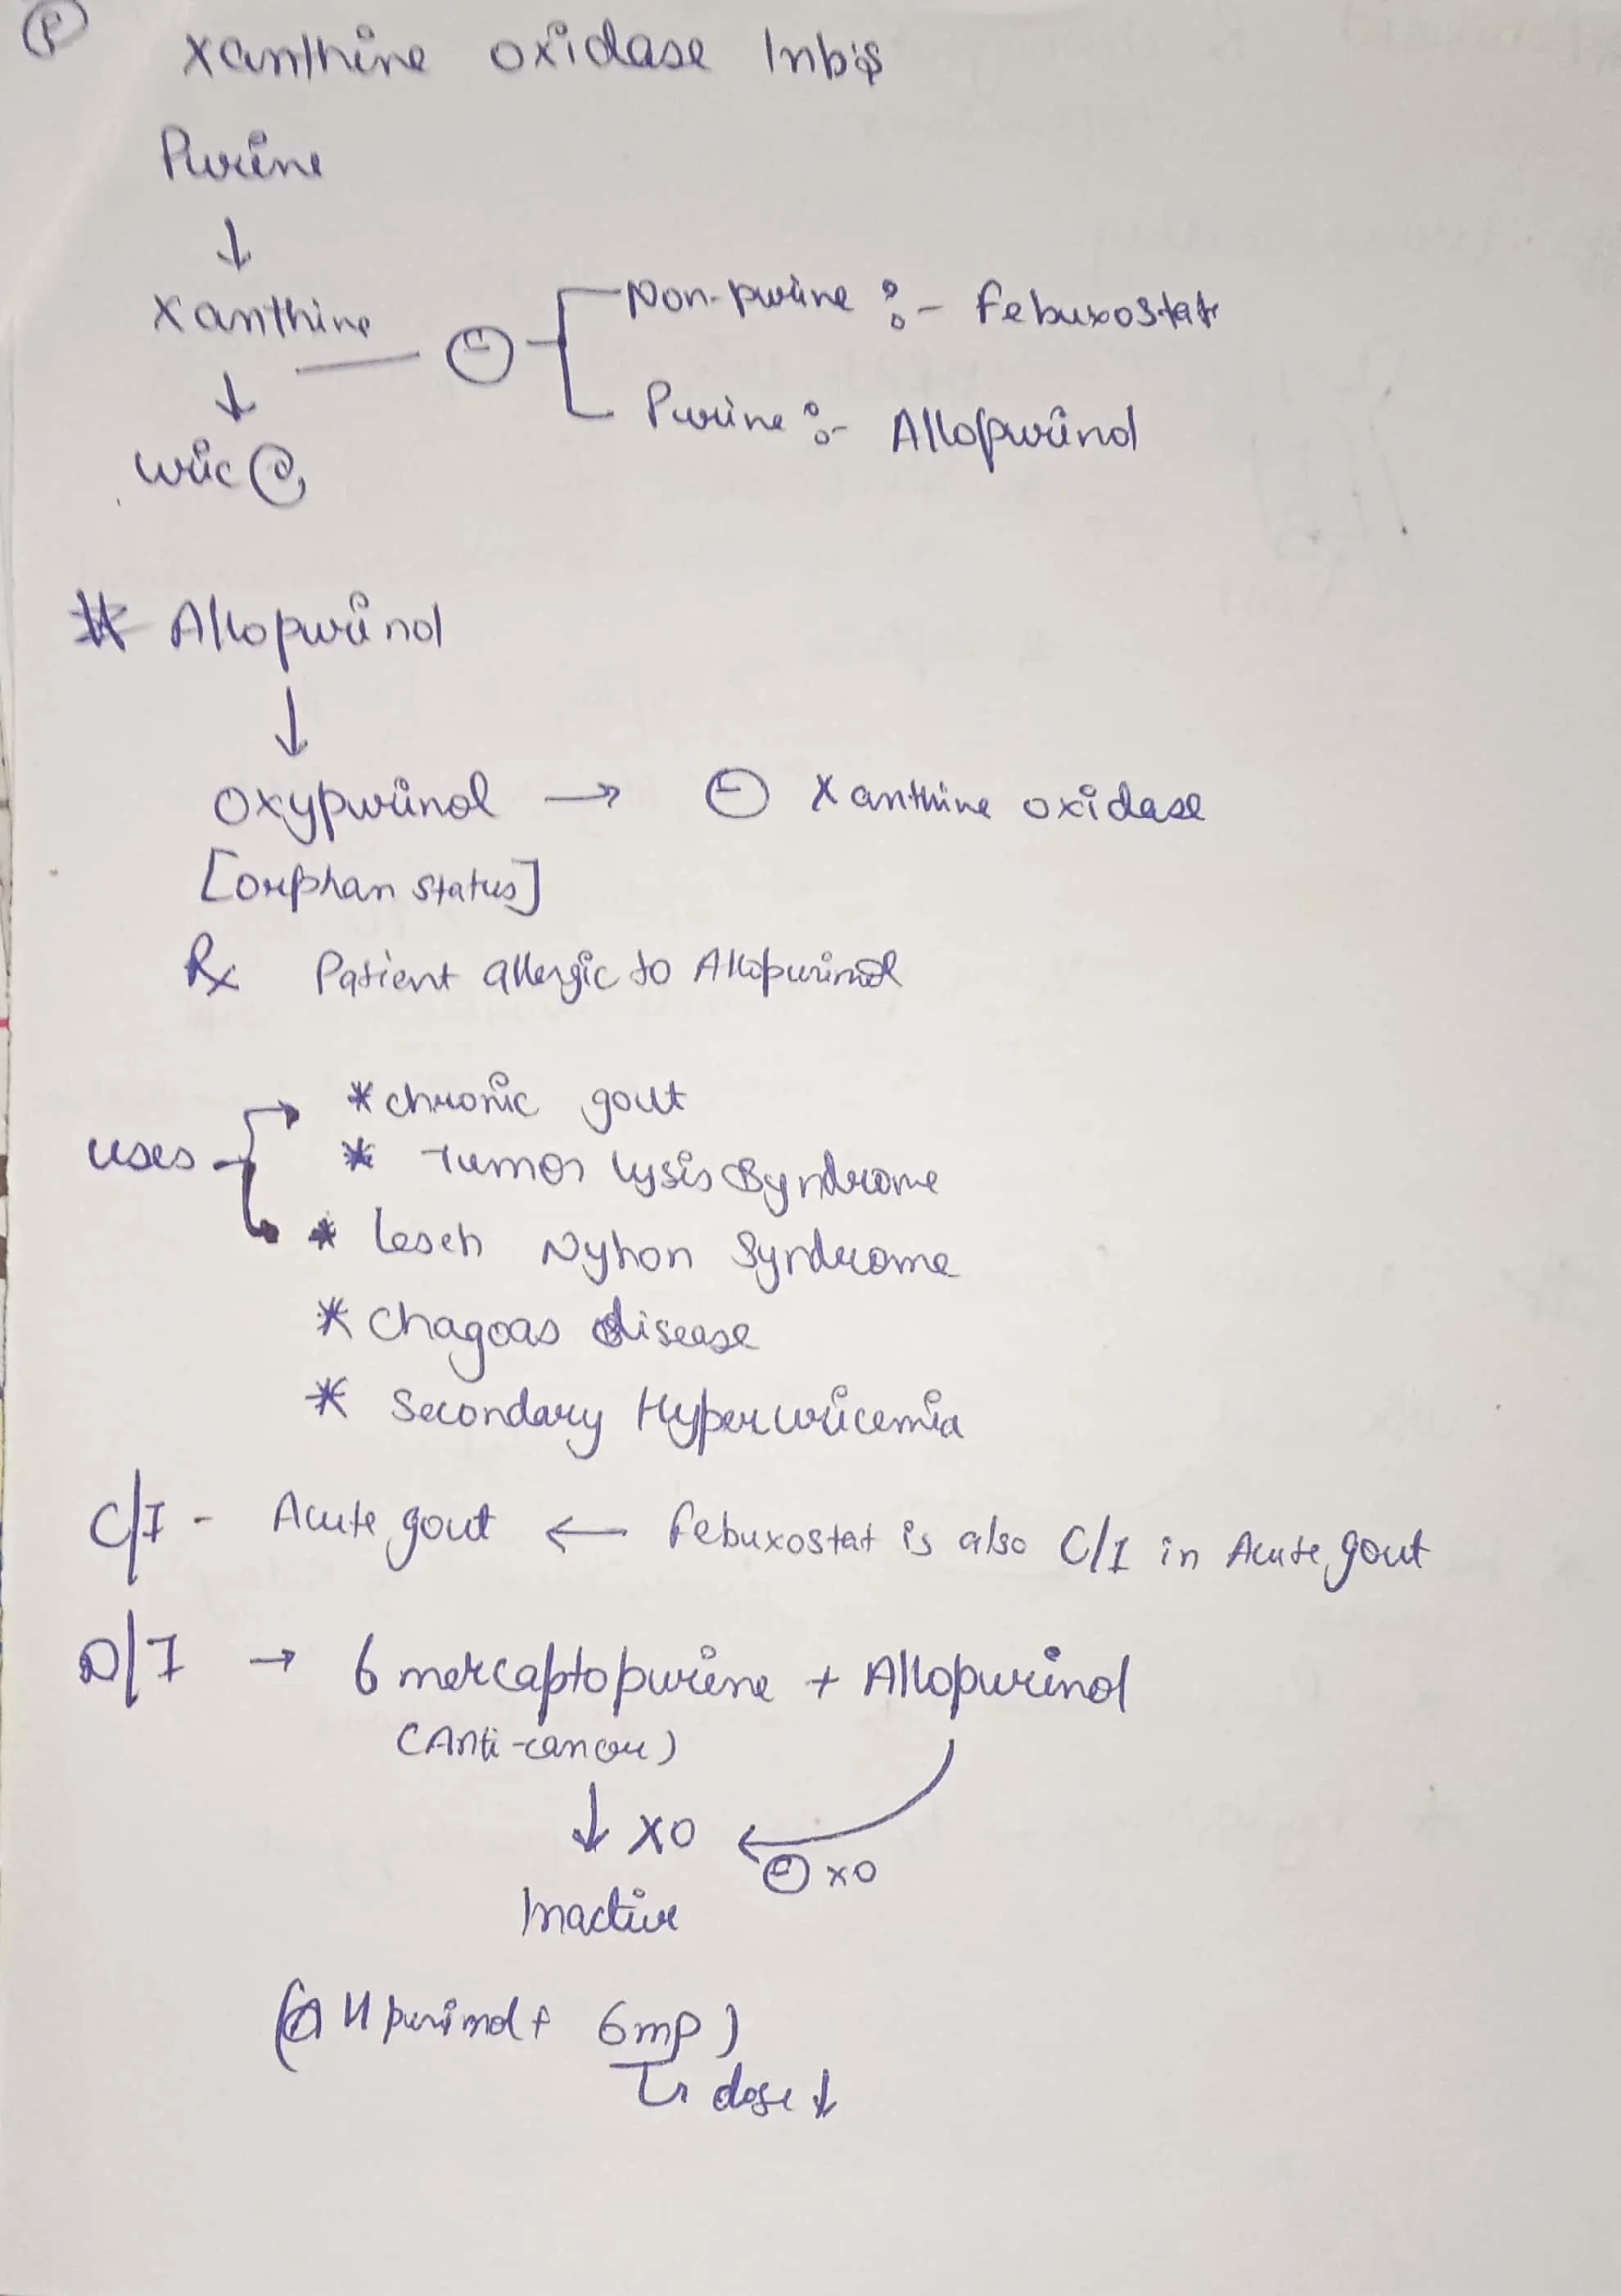 Ⓟ Xanthine oxidase Inbis
Purine
↓
Xanthine — ⊖ Non-purine :- Febuxostat
Purine :- Allopurinol
↓
Uric ⓐ
# Allopurinol
↓
Oxypurinol → ⊖ Xanthine oxidase
[orphan status]
Rx Patient allergic to Allopurinol
uses → * chronic gout
* Tumor lysis Syndrome
* Lesch Nyhon Syndrome
* Chagoas disease
* Secondary Hyperuricemia
C/I - Acute gout ← Febuxostat is also C/I in Acute gout
D/I → 6 mercaptopurine + Allopurinol
(Anti-cancer)
↓ XO ← ⊖ XO
Inactive
(Allpurinol + 6mp)
↳ dose ↓